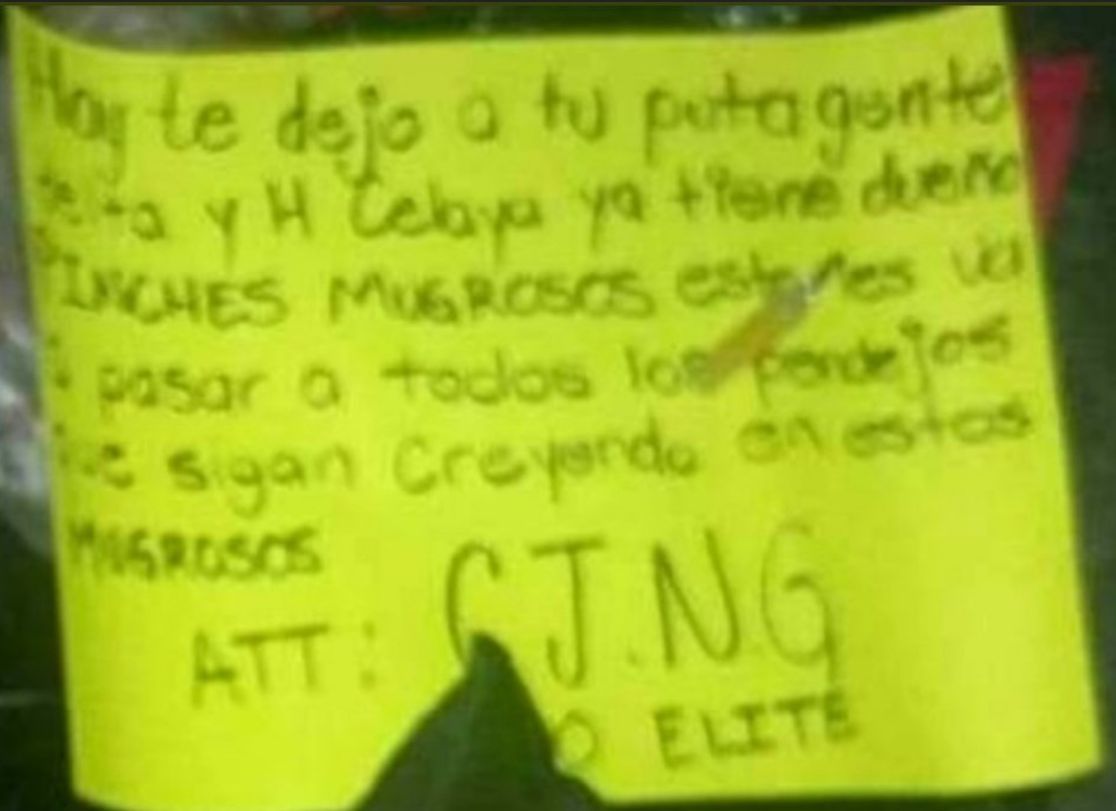 Hay te dejo a tu puta gente
y H Celaya ya tiene dueño
PINCHES MUGROSOS va
pasar a todos los pendejos
sigan creyendo en estos
MUGROSOS
ATT: CJ.NG
ELITE